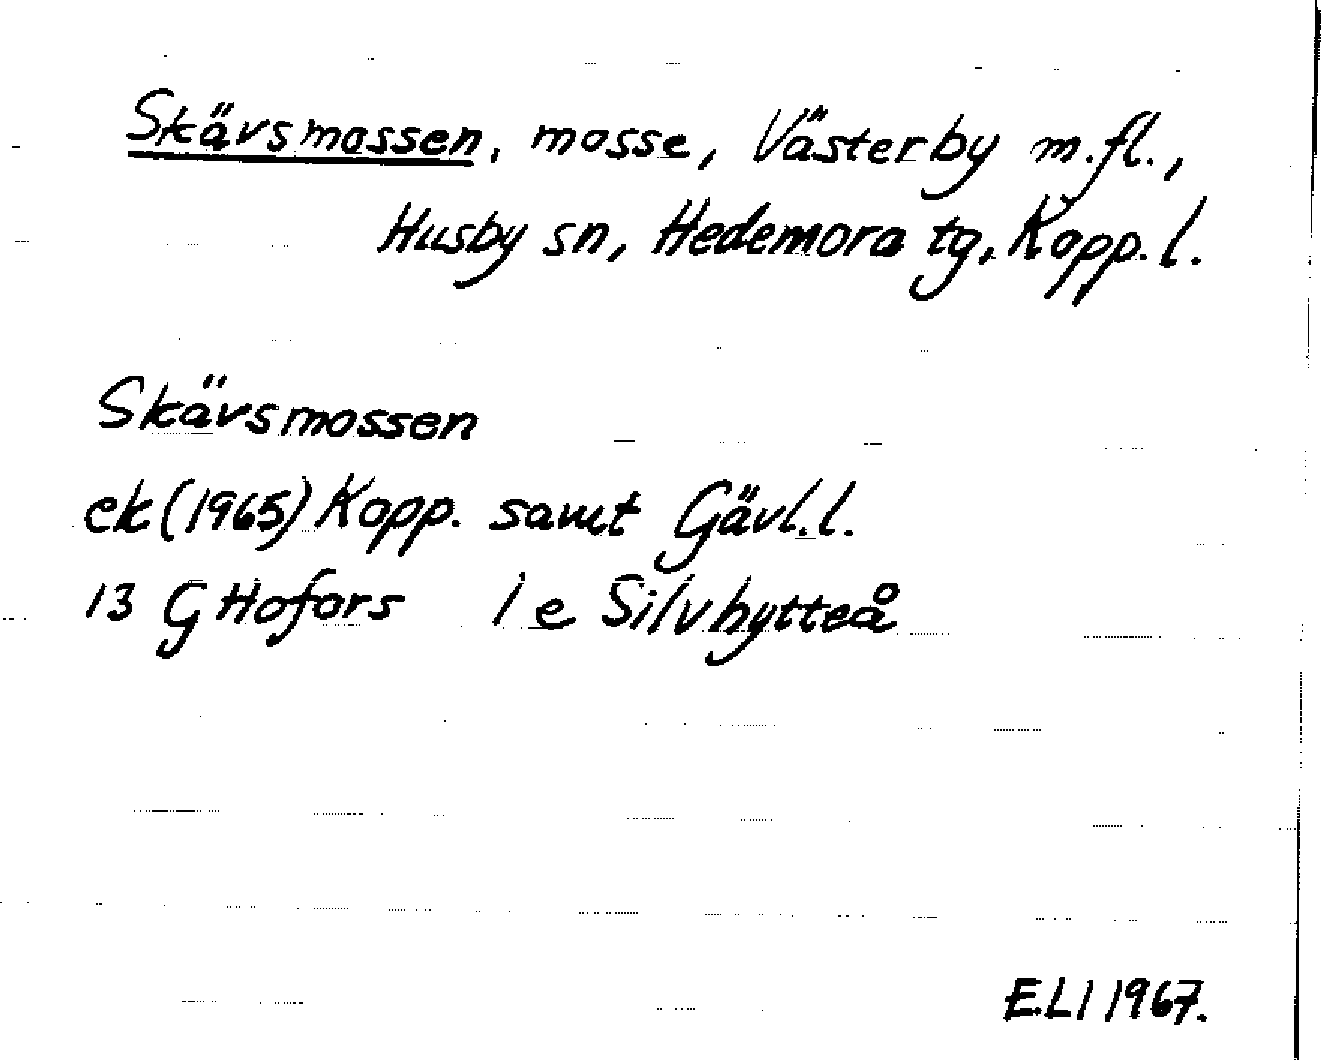 Skävsmossen, mosse, Västerby m.fl.,
Husby sn, Hedemora tg, Kopp. l.
Skävsmossen
ek (1965) Kopp. samt Gävl. l.
13 G Hofors 1 e Silvhytteå
E.LI 1967.